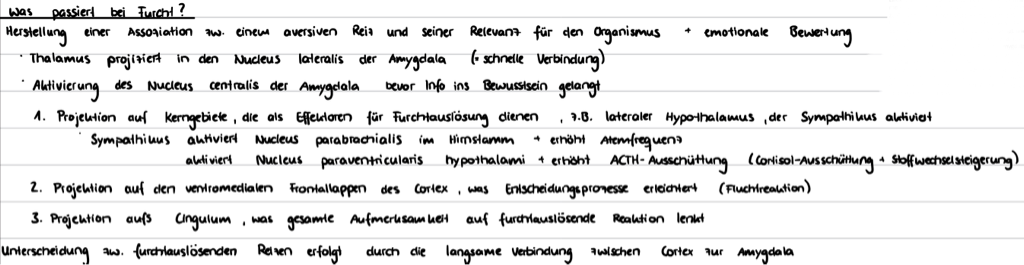 Was passiert bei Furcht?
Herstellung einer Assoziation zw. einem aversiven Reiz und seiner Relevanz für den Organismus + emotionale Bewertung
· Thalamus projiziert in den Nucleus lateralis der Amygdala (= schnelle Verbindung)
· Aktivierung des Nucleus centralis der Amygdala bevor Info ins Bewusstsein gelangt
1. Projektion auf Kerngebiete, die als Effektoren für Furchtauslösung dienen, z.B. lateraler Hypothalamus, der Sympathikus aktiviert
· Sympathikus aktiviert Nucleus parabrachialis im Hirnstamm + erhöht Atemfrequenz
aktiviert Nucleus paraventricularis hypothalami + erhöht ACTH-Ausschüttung (Cortisol-Ausschüttung + Stoffwechselsteigerung)
2. Projektion auf den ventromedialen Frontallappen des Cortex, was Entscheidungsprozesse erleichtert (Fluchtreaktion)
3. Projektion aufs Cingulum, was gesamte Aufmerksamkeit auf furchtauslösende Reaktion lenkt
Unterscheidung zw. furchtauslösenden Reizen erfolgt durch die langsame Verbindung zwischen Cortex zur Amygdala